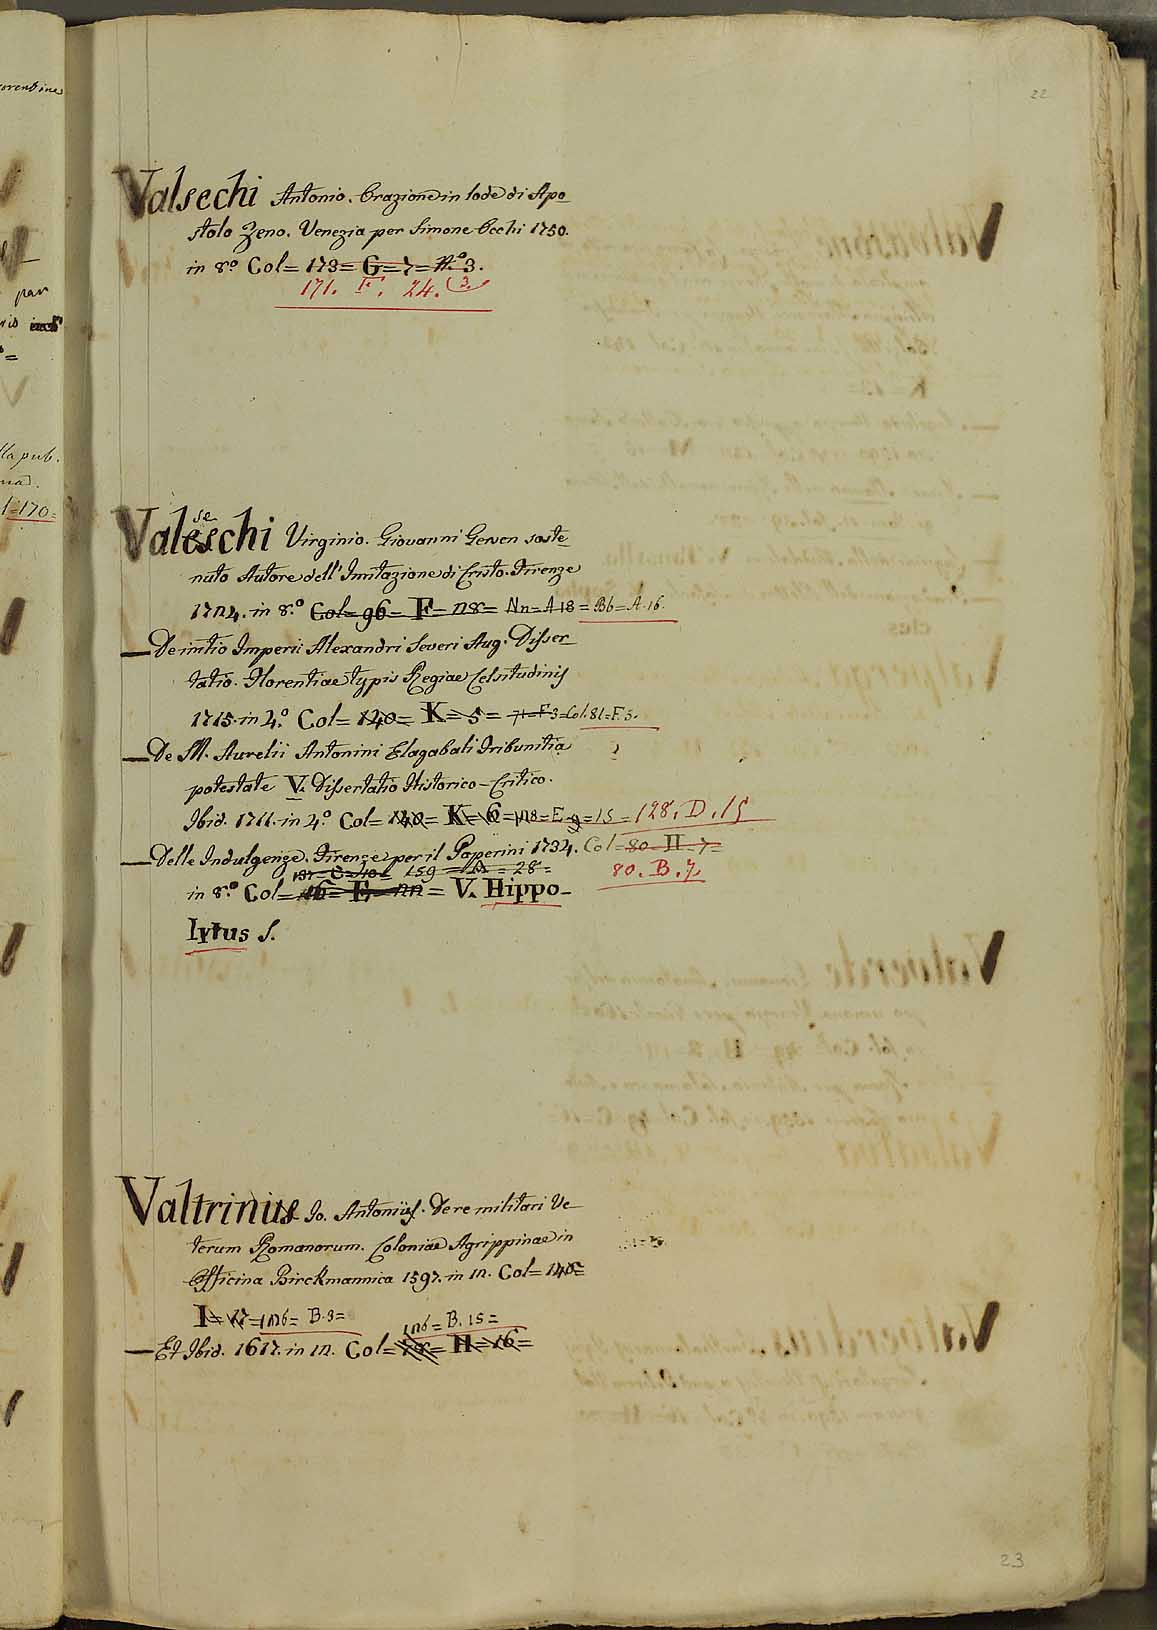 22
Valsechi Antonio. Orazione in lode di Apo_
stolo Zeno. Venezia per Simone Occhi 1750.
in 8.º Col= 173= G=7= N.º 3.
171. F. 24. (3.
Valeschi Virginio. Giovanni Gersen soste_
se
nuto Autore dell' Imitazione di Cristo. Firenze
1724. in 8.º Col= 96= F= 28= Nn= A 18 = Bb= A. 16.
— De initio Imperii Alexandri Severi Aug. Disser_
tatio. Florentiae typis Regiae Celsitudinis
1715. in 4.º Col= 140= K= 5= 71= F 3= Col. 81= F. 5.
— De M. Aurelii Antonini Elagabali Tribunitia
potestate V. Dissertatio Historico-Critico.
Ibid. 1711. in 4.º Col= 140= K= 6= 128= E 9= 15 = 128. D. 15
— Delle Indulgenze. Firenze per il Paperini 1734. Col= 80= H= 7=
159 = A = 28=
80. B. 7.
in 8.º Col= E = V. Hippo_
lytus S.
Valtrinus Io. Antonius. De re militari Ve_
terum Romanorum. Coloniae Agrippinae in
Officina Birckmannica 1597. in 12. Col= 140=
I= 17= 126= B. 3=
126= B. 15=
— Et Ibid. 1617. in 12. Col= H= 16=
23